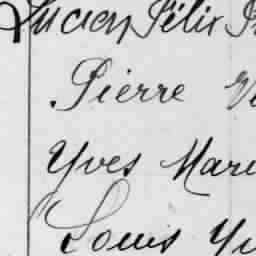 Lucien Félix
Pierre
Yves Marie
Louis Yv